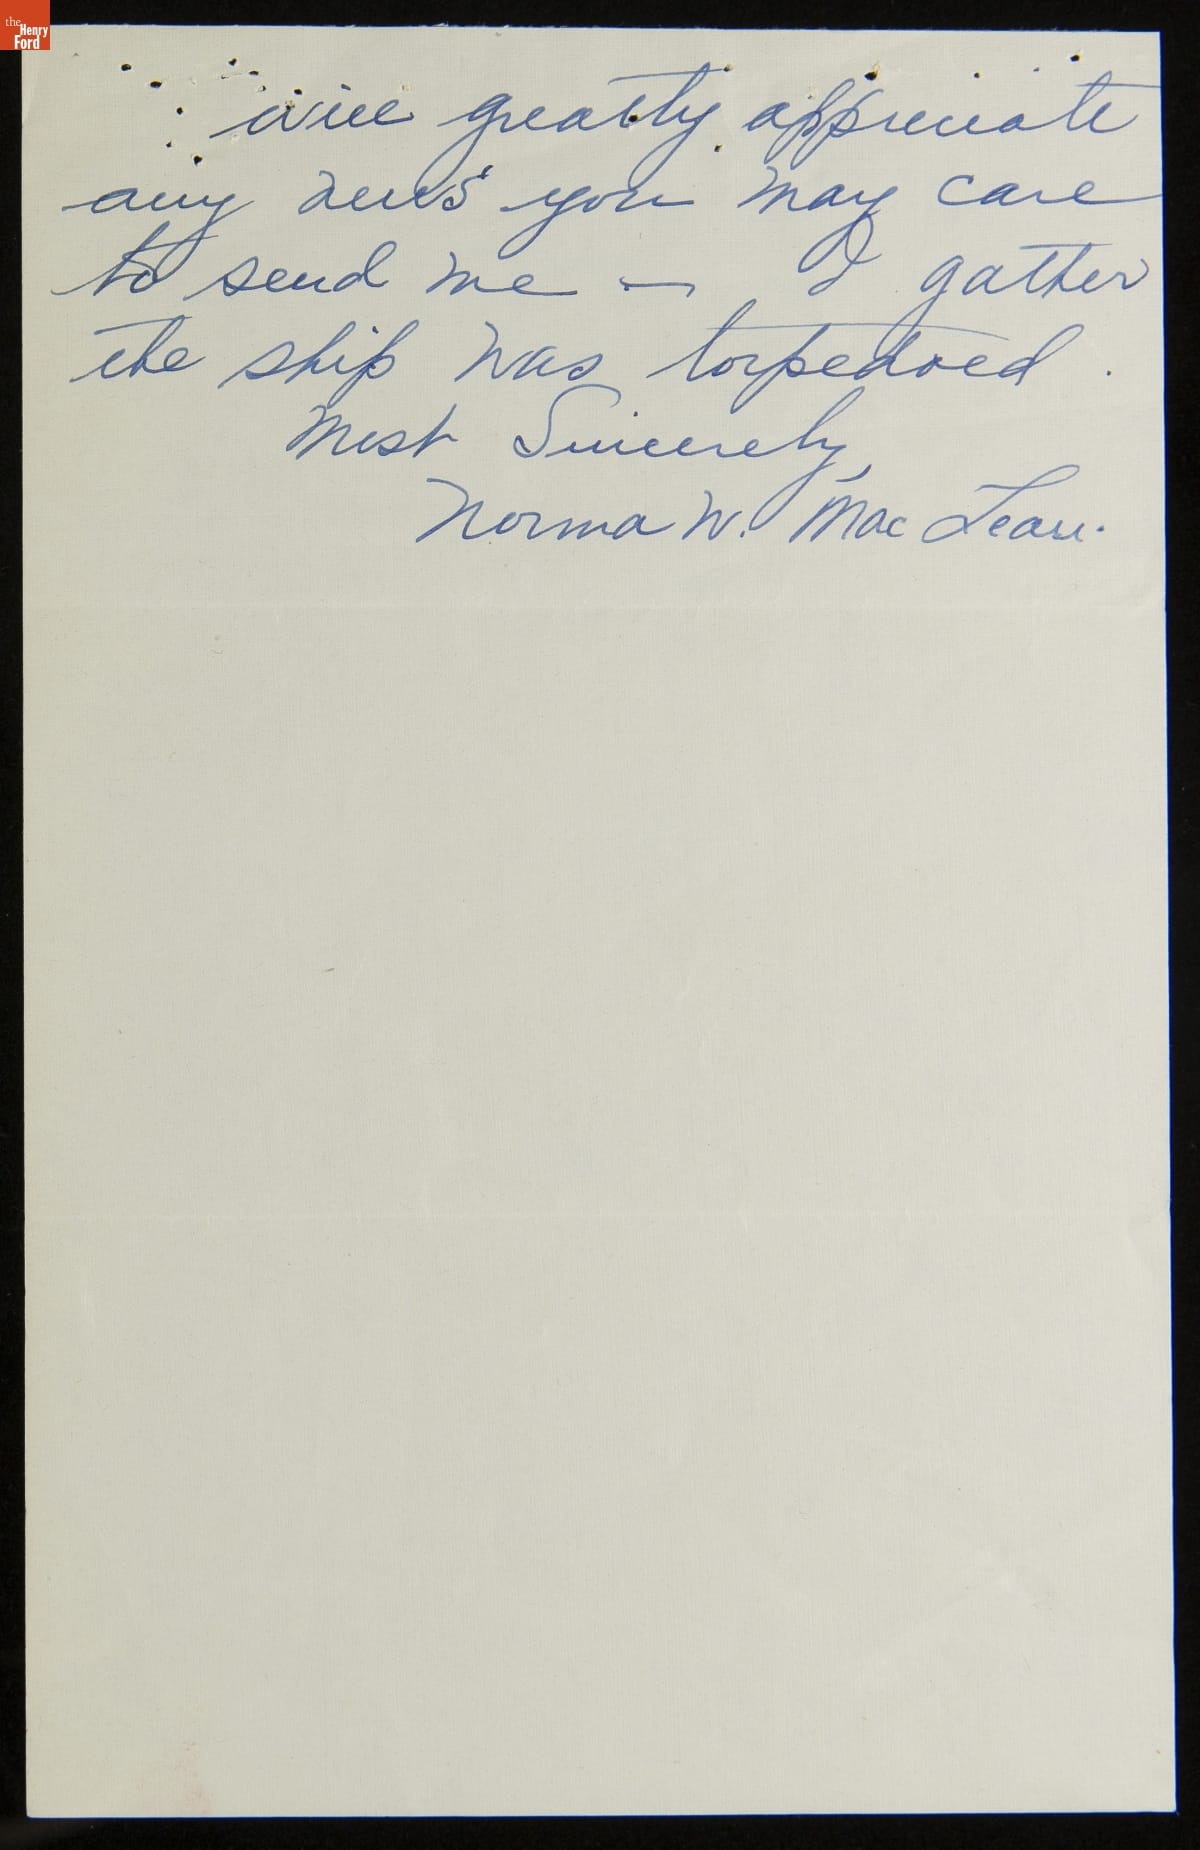 the
Henry
Ford
will greatly appreciate
any news you may care
to send me — I gather
the ship was torpedoed.
Most Sincerely,
Norma W. Mac Lean.